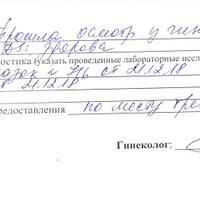 Прошла осмотр у гин
DS: Здорова
остика (указать проведенные лабораторные иссл
мазок и Т/ц от 21.12.18
21.12.18
редоставления по месту тре
Гинеколог: